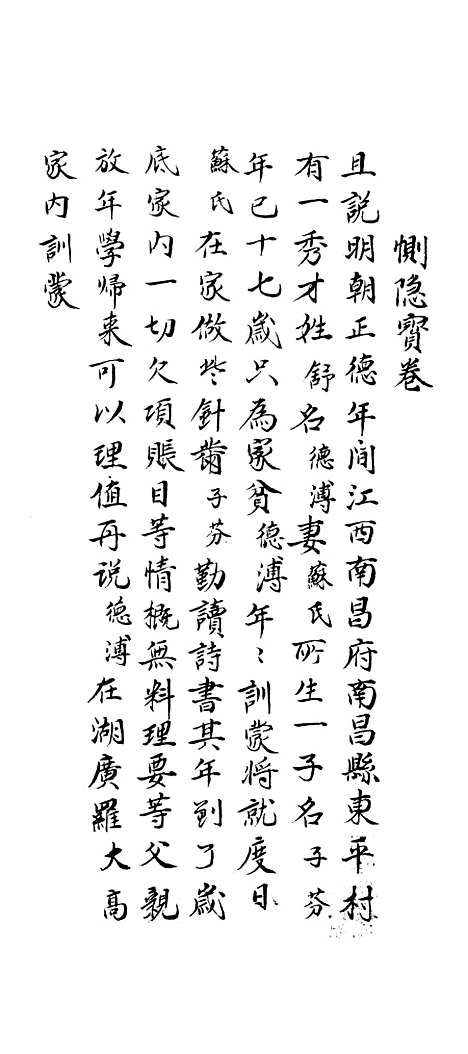 惻隐寳卷
且説明朝正德年间江西南昌府南昌縣東平村
有一秀才姓舒名德溥妻蘇氏所生一子名子芬
年已十七歲只為家貧德溥年〻訓蒙将就度日
蘇氏在家做些針黹子芬勤讀詩書其年到了歲
底家内一切欠項賬目等情概無料理要等父親
放年學歸来可以理值再说德溥在湖廣羅大高
家内訓蒙